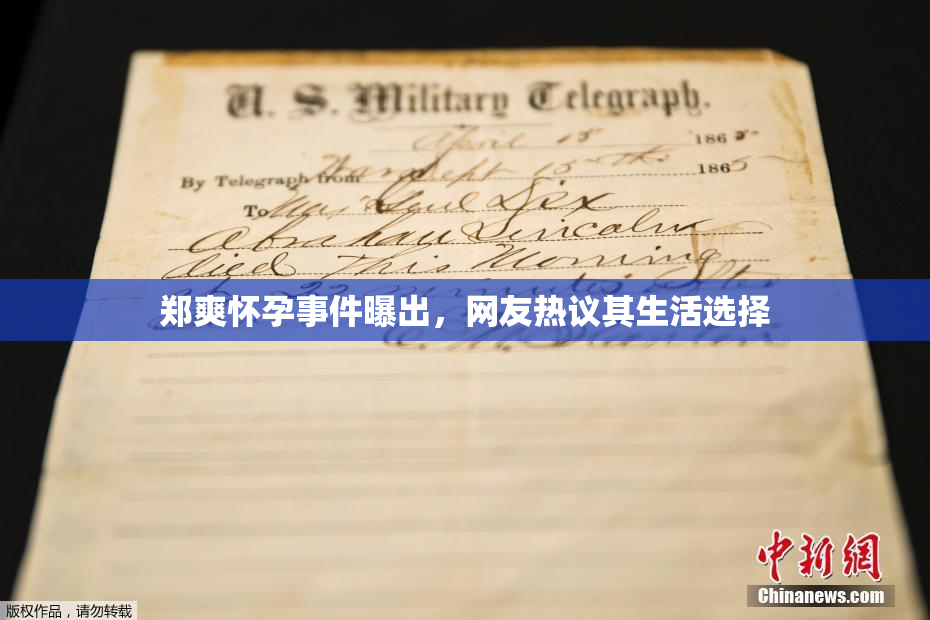 U. S. Military Telegraph.
April 15 1865
By Telegraph from War Dept 15th 1865
To Maj Genl Dix
Abraham Lincoln
died This Morning
at 22 minutes after
郑爽怀孕事件曝出，网友热议其生活选择
E. M. Stanton
中新網
Chinanews.com
版权作品，请勿转载